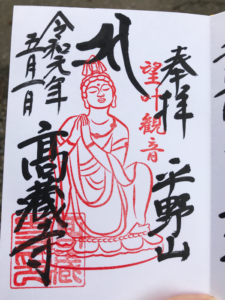 奉拝
平野山
望叶観音
令和元年
五月一日
高蔵寺